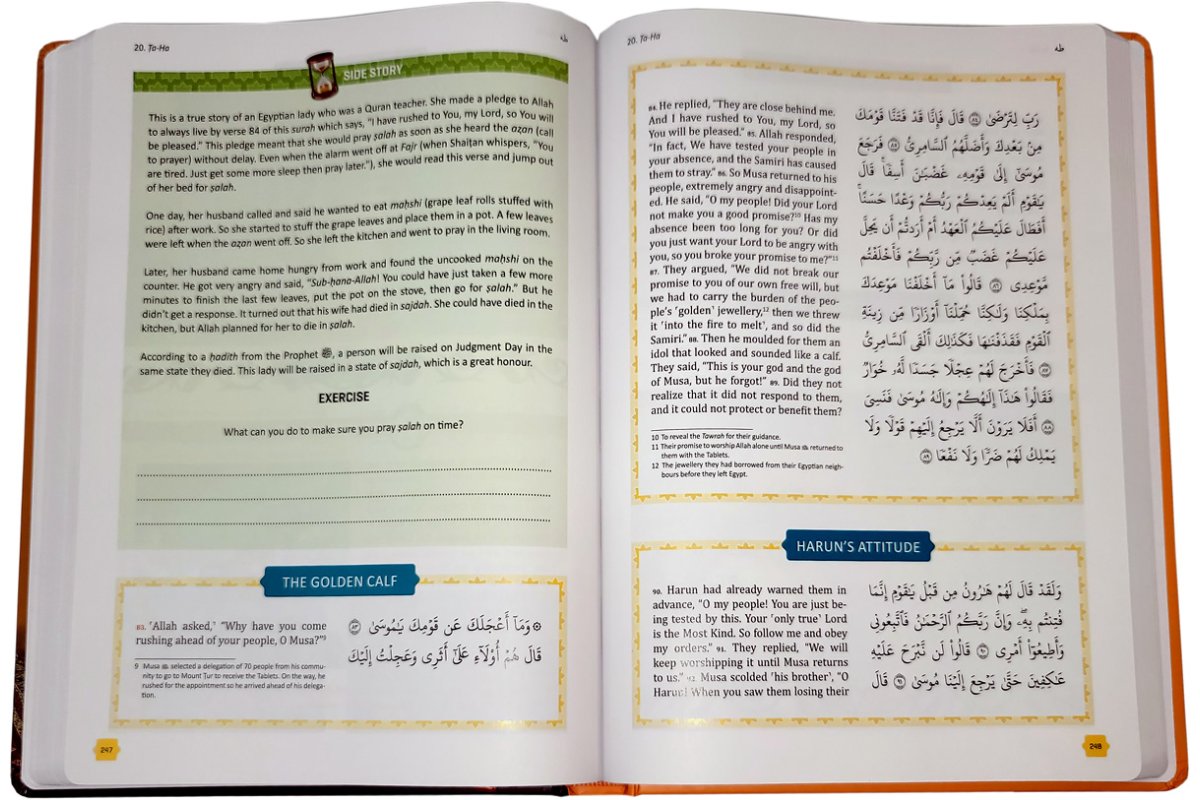 20. Ṭa-Ha
طه
SIDE STORY
This is a true story of an Egyptian lady who was a Quran teacher. She made a pledge to Allah
to always live by verse 84 of this surah which says, "I have rushed to You, my Lord, so You will
be pleased." This pledge meant that she would pray ṣalah as soon as she heard the aẓan (call
to prayer) without delay. Even when the alarm went off at Fajr (when Shaiṭan whispers, "You
are tired. Just get some more sleep then pray later."), she would read this verse and jump out
of her bed for ṣalah.
One day, her husband called and said he wanted to eat maḥshi (grape leaf rolls stuffed with
rice) after work. So she started to stuff the grape leaves and place them in a pot. A few leaves
were left when the aẓan went off. So she left the kitchen and went to pray in the living room.
Later, her husband came home hungry from work and found the uncooked maḥshi on the
counter. He got very angry and said, "Sub-ḥana-Allah! You could have just taken a few more
minutes to finish the last few leaves, put the pot on the stove, then go for ṣalah." But he
didn't get a response. It turned out that his wife had died in sajdah. She could have died in the
kitchen, but Allah planned for her to die in ṣalah.
According to a ḥadith from the Prophet ﷺ, a person will be raised on Judgment Day in the
same state they died. This lady will be raised in a state of sajdah, which is a great honour.
EXERCISE
What can you do to make sure you pray ṣalah on time?
THE GOLDEN CALF
83. ˹Allah asked,˺ "Why have you come
rushing ahead of your people, O Musa?"⁹
9 Musa selected a delegation of 70 people from his commu-
nity to go to Mount Ṭur to receive the Tablets. On the way, he
rushed for the appointment so he arrived ahead of his delega-
tion.
۞ وَمَآ أَعْجَلَكَ عَن قَوْمِكَ يَـٰمُوسَىٰ ٨٣
قَالَ هُمْ أُو۟لَآءِ عَلَىٰٓ أَثَرِى وَعَجِلْتُ إِلَيْكَ
247
20. Ṭa-Ha
طه
84. He replied, "They are close behind me.
And I have rushed to You, my Lord, so
You will be pleased." 85. Allah responded,
"In fact, We have tested your people in
your absence, and the Samiri has caused
them to stray." 86. So Musa returned to his
people, extremely angry and disappoint-
ed. He said, "O my people! Did your Lord
not make you a good promise?¹⁰ Has my
absence been too long for you? Or did
you just want your Lord to be angry with
you, so you broke your promise to me?"¹¹
87. They argued, "We did not break our
promise to you of our own free will, but
we had to carry the burden of the peo-
ple's ˹golden˺ jewellery,¹² then we threw
it ˹into the fire to melt˺, and so did the
Samiri." 88. Then he moulded for them an
idol that looked and sounded like a calf.
They said, "This is your god and the god
of Musa, but he forgot!" 89. Did they not
realize that it did not respond to them,
and it could not protect or benefit them?
10 To reveal the Tawrah for their guidance.
11 Their promise to worship Allah alone until Musa returned to
them with the Tablets.
12 The jewellery they had borrowed from their Egyptian neigh-
bours before they left Egypt.
رَبِّ لِتَرْضَىٰ ٨٤ قَالَ فَإِنَّا قَدْ فَتَنَّا قَوْمَكَ
مِنۢ بَعْدِكَ وَأَضَلَّهُمُ ٱلسَّامِرِىُّ ٨٥ فَرَجَعَ
مُوسَىٰٓ إِلَىٰ قَوْمِهِۦ غَضْبَـٰنَ أَسِفًا ۚ قَالَ
يَـٰقَوْمِ أَلَمْ يَعِدْكُمْ رَبُّكُمْ وَعْدًا حَسَنًا ۚ
أَفَطَالَ عَلَيْكُمُ ٱلْعَهْدُ أَمْ أَرَدتُّمْ أَن يَحِلَّ
عَلَيْكُمْ غَضَبٌ مِّن رَّبِّكُمْ فَأَخْلَفْتُم
مَّوْعِدِى ٨٦ قَالُوا۟ مَآ أَخْلَفْنَا مَوْعِدَكَ
بِمَلْكِنَا وَلَـٰكِنَّا حُمِّلْنَآ أَوْزَارًا مِّن زِينَةِ
ٱلْقَوْمِ فَقَذَفْنَـٰهَا فَكَذَٰلِكَ أَلْقَى ٱلسَّامِرِىُّ
٨٧ فَأَخْرَجَ لَهُمْ عِجْلًا جَسَدًا لَّهُۥ خُوَارٌ
فَقَالُوا۟ هَـٰذَآ إِلَـٰهُكُمْ وَإِلَـٰهُ مُوسَىٰ فَنَسِىَ
٨٨ أَفَلَا يَرَوْنَ أَلَّا يَرْجِعُ إِلَيْهِمْ قَوْلًا وَلَا
يَمْلِكُ لَهُمْ ضَرًّا وَلَا نَفْعًا ٨٩
HARUN'S ATTITUDE
90. Harun had already warned them in
advance, "O my people! You are just be-
ing tested by this. Your ˹only true˺ Lord
is the Most Kind. So follow me and obey
my orders." 91. They replied, "We will
keep worshipping it until Musa returns
to us." 92. Musa scolded ˹his brother˺, "O
Harun! When you saw them losing their
وَلَقَدْ قَالَ لَهُمْ هَـٰرُونُ مِن قَبْلُ يَـٰقَوْمِ إِنَّمَا
فُتِنتُم بِهِۦ ۖ وَإِنَّ رَبَّكُمُ ٱلرَّحْمَـٰنُ فَٱتَّبِعُونِى
وَأَطِيعُوٓا۟ أَمْرِى ٩٠ قَالُوا۟ لَن نَّبْرَحَ عَلَيْهِ
عَـٰكِفِينَ حَتَّىٰ يَرْجِعَ إِلَيْنَا مُوسَىٰ ٩١ قَالَ
248